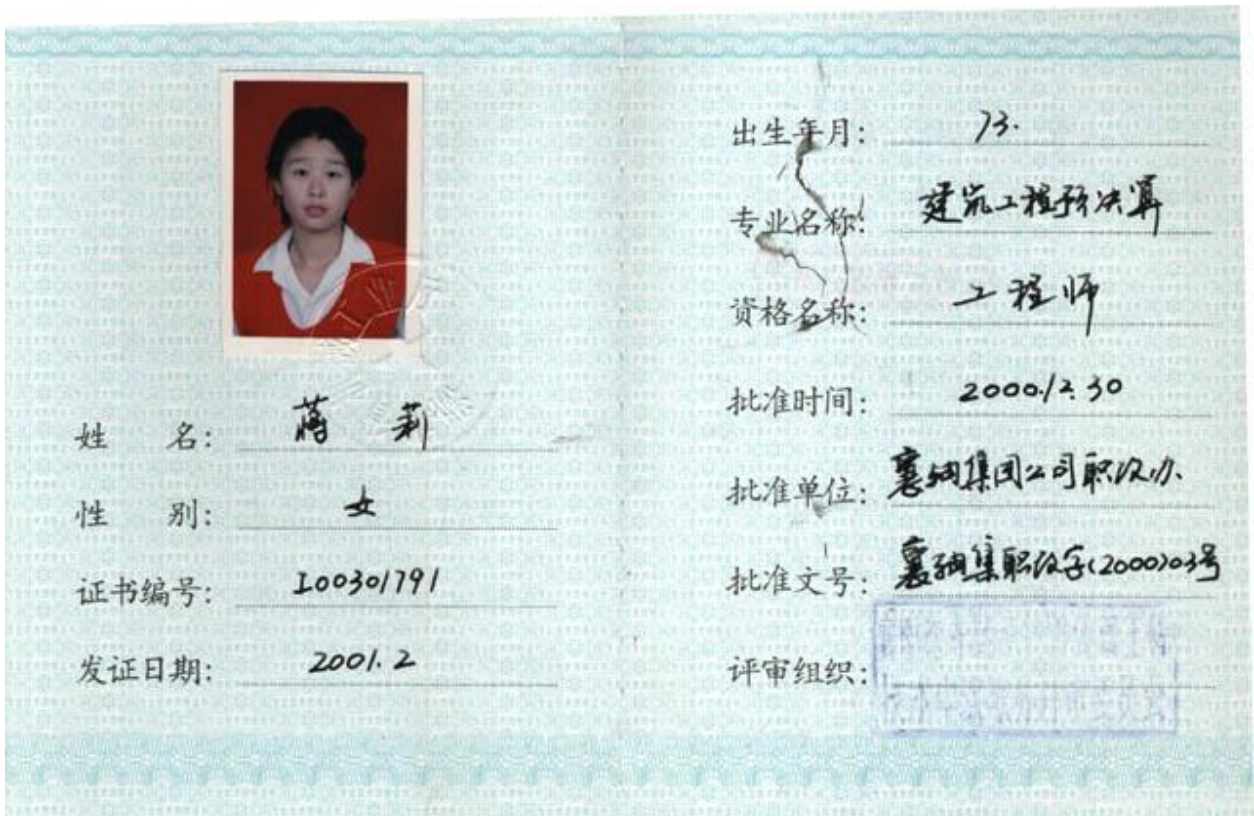 姓 名: 蒋 莉
性 别: 女
证书编号: I00301791
发证日期: 2001.2
出生年月: 73.
专业名称: 建筑工程预决算
资格名称: 工程师
批准时间: 2000.12.30
批准单位: 襄轴集团公司职改办
批准文号: 襄轴集职改字(2000)03号
评审组织: